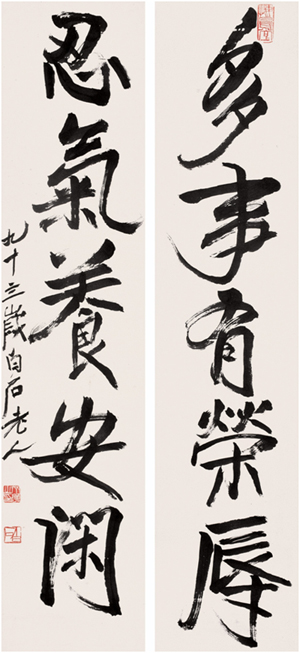 多事有榮辱
忍氣養安閑
九十三歲白石老人